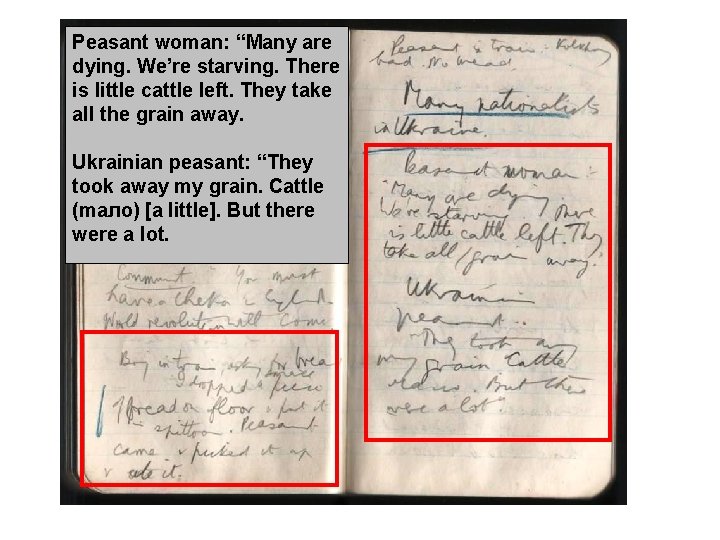 Peasant woman: “Many are
dying. We’re starving. There
is little cattle left. They take
all the grain away.
Ukrainian peasant: “They
took away my grain. Cattle
(mало) [a little]. But there
were a lot.
Comment You must
have a Cheka in England
World revolution will come
Boy in train asking for bread
dropped a piece
of bread on floor & put it
in spittoon. Peasant
came & picked it up
& ate it.
Peasant in train: Kolkhoz
bad. No bread.
Many nationalists
in Ukraine.
Peasant woman:
"Many are dying.
We're starving. There
is little cattle left. They
take all grain away."
Ukrainian
peasant:
"They took away
my grain Cattle
But there
were a lot"